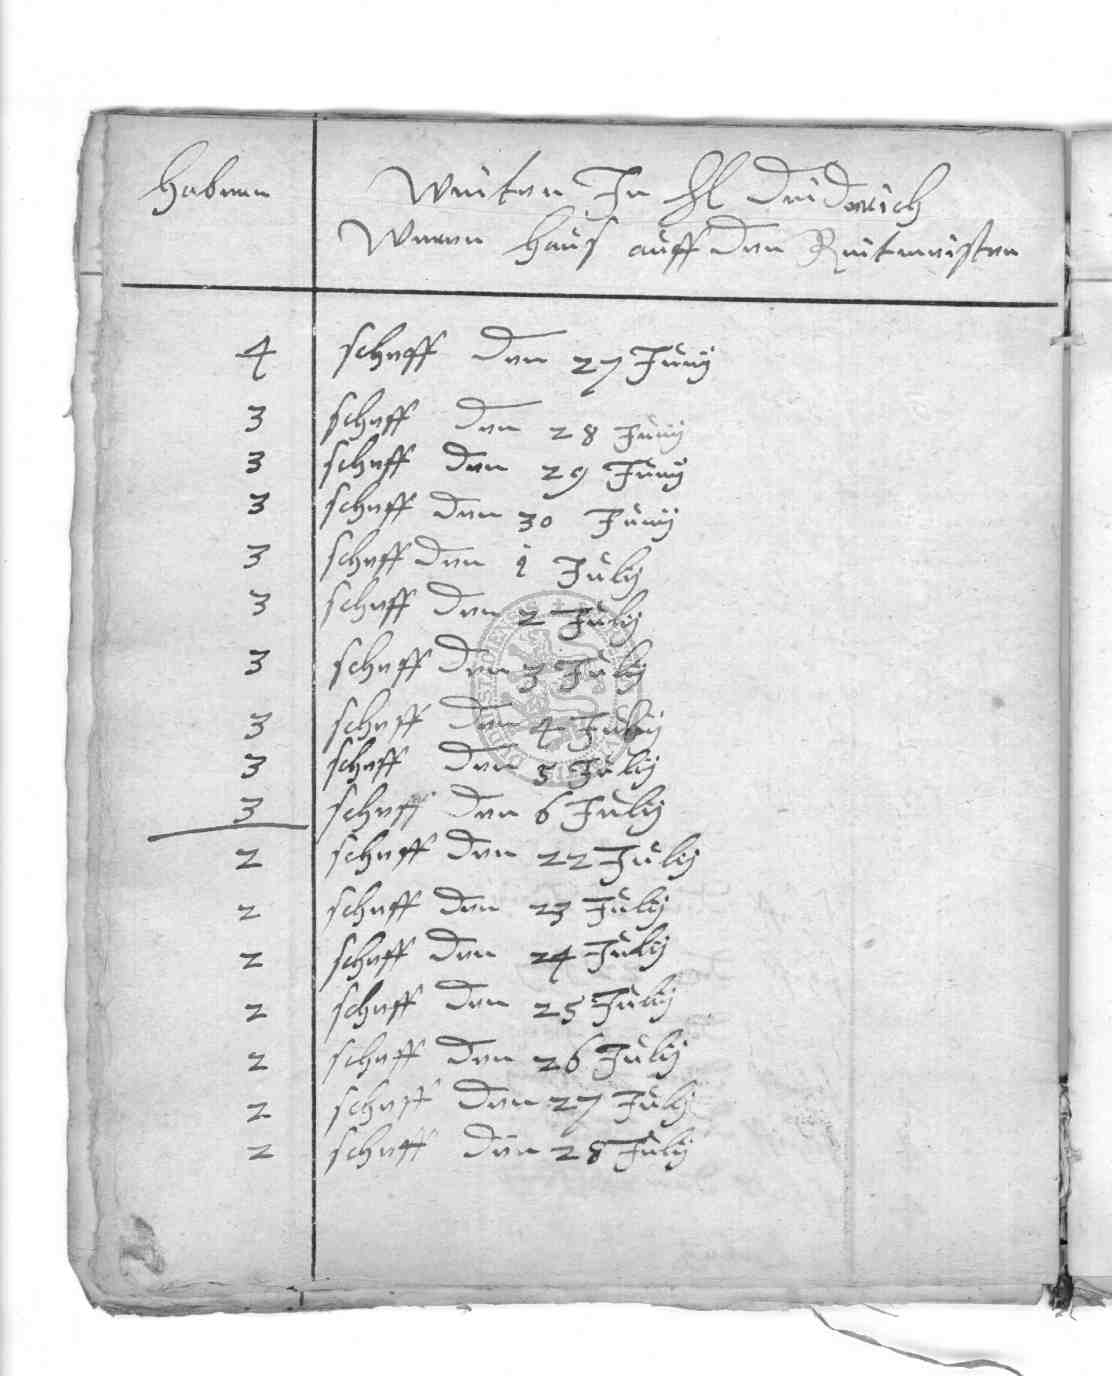 Habern
Weiter In Hl Deiderich
Weren Haus auff den Reitmeister
4 scheff den 27 Junij
3 scheff den 28 Junij
3 scheff den 29 Junij
3 scheff den 30 Junij
3 scheff den i Julij
3 scheff den 2 Julij
3 scheff den 3 Julij
3 scheff den 4 Julij
3 scheff den 5 Julij
3 scheff den 6 Julij
2 scheff den 22 Julij
2 scheff den 23 Julij
2 scheff den 24 Julij
2 scheff den 25 Julij
2 scheff den 26 Julij
2 scheff den 27 Julij
2 scheff den 28 Julij